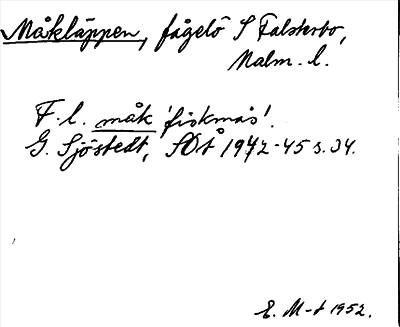 Måkläppen, fågelö S Falsterbo,
Malm. l.
F. l. måk 'fiskmås'.
G. Sjöstedt, SOÅ 1942-45 s. 34.
E. M-t 1952.